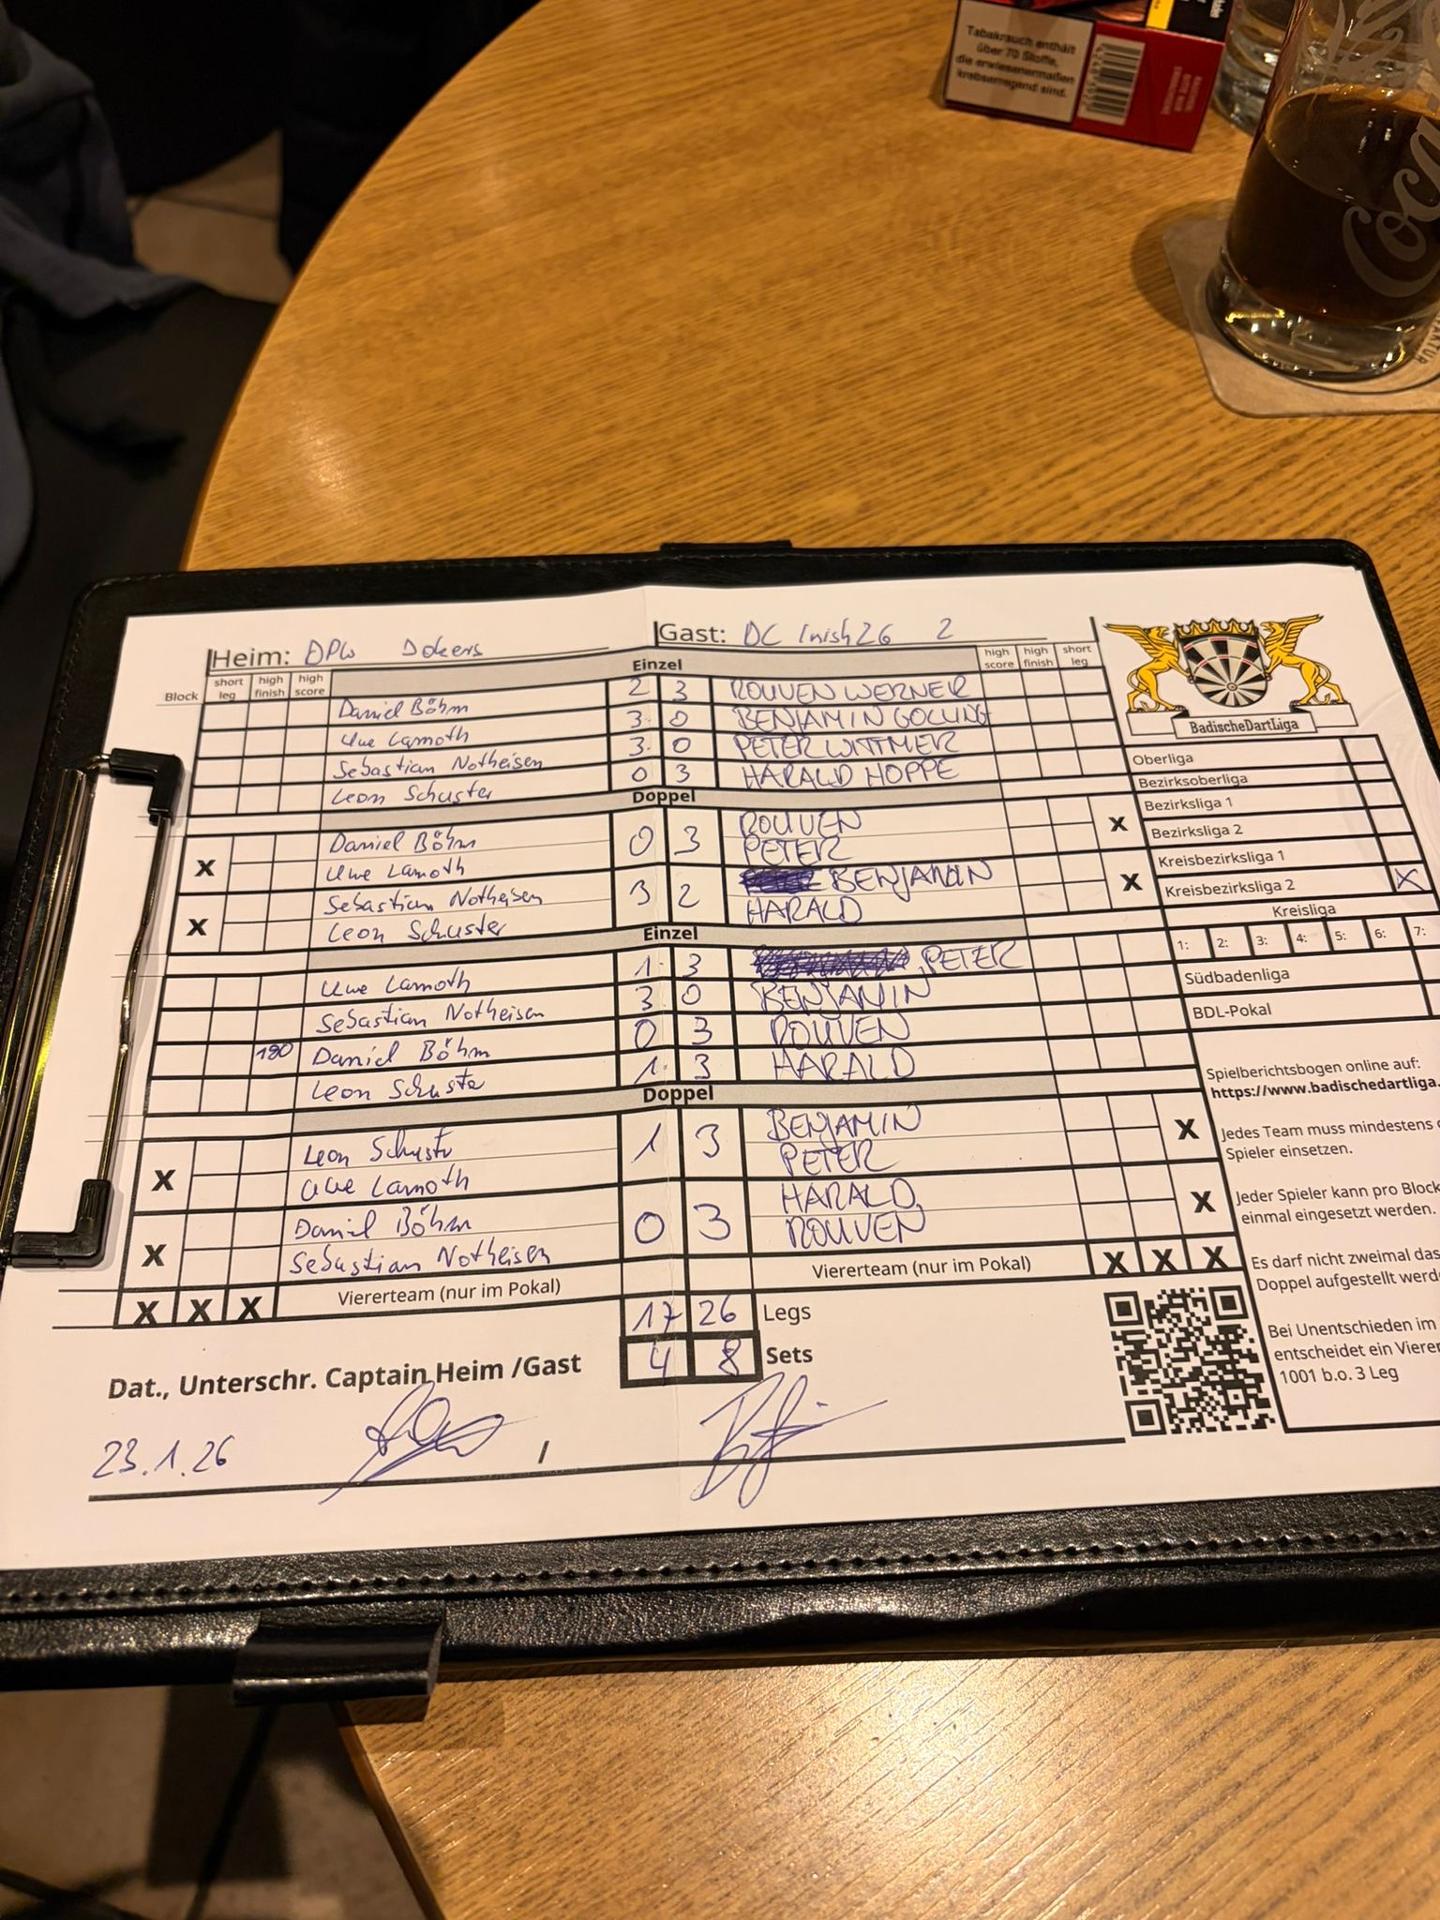 Tabakrauch enthält
über 70 Stoffe,
die erwiesenermaßen
krebserregend sind.
Coca
Heim: DPW Dokers
Gast: DC Inish26 2
Block short leg high finish high score Einzel high score high finish short leg
Daniel Böhm 2 3 ROUVEN WERNER
Uwe Lamoth 3 0 BENJAMIN GOLLING
Sebastian Notheisen 3 0 PETER WITTMER
Leon Schuster 0 3 HARALD HOPPE
Doppel
X Daniel Böhm 0 3 ROUVEN X
Uwe Lamoth PETER
X Sebastian Notheisen 3 2 BENJAMIN X
Leon Schuster HARALD
Einzel
Uwe Lamoth 1 3 PETER
Sebastian Notheisen 3 0 BENJAMIN
180 Daniel Böhm 0 3 ROUVEN
Leon Schuster 1 3 HARALD
Doppel
X Leon Schuster 1 3 BENJAMIN X
Uwe Lamoth PETER
X Daniel Böhm 0 3 HARALD X
Sebastian Notheisen ROUVEN
X X X Viererteam (nur im Pokal) Viererteam (nur im Pokal) X X X
17 26 Legs
4 8 Sets
Dat., Unterschr. Captain Heim /Gast
23.1.26 /
BadischeDartLiga
Oberliga
Bezirksoberliga
Bezirksliga 1
Bezirksliga 2
Kreisbezirksliga 1
Kreisbezirksliga 2 X
Kreisliga
1: 2: 3: 4: 5: 6: 7:
Südbadenliga
BDL-Pokal
Spielberichtsbogen online auf:
https://www.badischedartliga.
Jedes Team muss mindestens
Spieler einsetzen.
Jeder Spieler kann pro Block
einmal eingesetzt werden.
Es darf nicht zweimal das
Doppel aufgestellt werd
Bei Unentschieden im
entscheidet ein Vierer
1001 b.o. 3 Leg